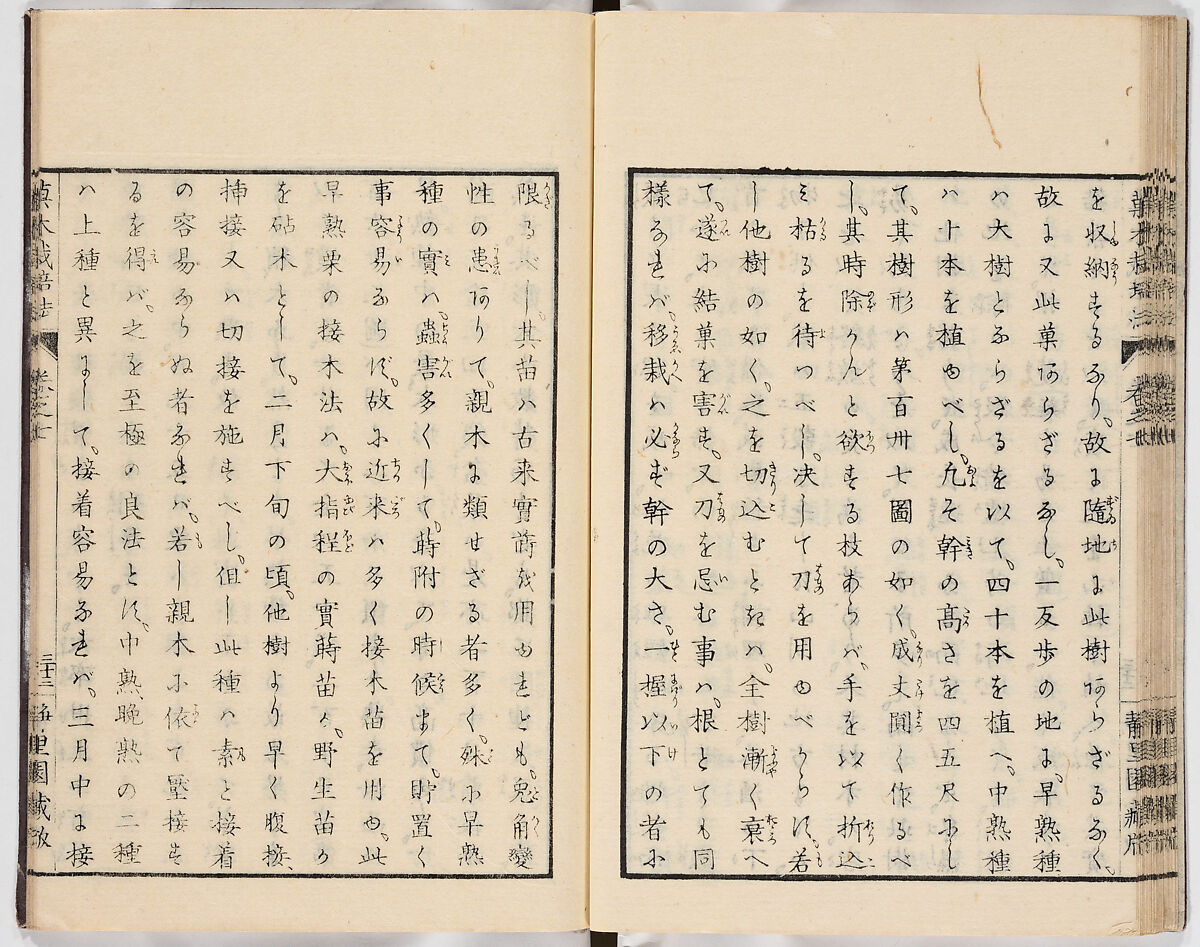 菓木栽培法
卷之七
静里園藏版
を収納するなり、故に隨地に此樹あらざるなく、
故に又此菓あらざるなし、一反歩の地に、早熟種
ハ大樹とならざるを以て、四十本を植へ、中熟種
ハ十本を植ゆべし、凡そ幹の髙さを四五尺にし
て、其樹形ハ第百卅七圖の如く、成丈圓く作るべ
し、其時除かんと欲する枝あらバ、手を以て折込
ミ枯るを待つべし、决して刀を用ゆべからず、若
し他樹の如く、之を切込むときハ、全樹漸く衰へ
て、遂に結菓を害す、又刀を忌む事ハ、根とても同
樣なれバ、移栽ハ必ず幹の大さ、一握以下の者に
限るべし、其苗ハ古来實蒔を用ゆれども、兎角變
性の患ありて、親木に類せざる者多く、殊に早熟
種の實ハ、蟲害多くして、蒔附の時候まて、貯置く
事容易ならず、故に近来ハ多く接木苗を用ゆ、此
早熟栗の接木法ハ、大指程の實蒔苗か、野生苗か
を砧木として、二月下旬の頃、他樹より早く腹接、
挿接又ハ切接を施すべし、但し此種ハ素と接着
の容易ならぬ者なれバ、若し親木に依て壓接す
るを得バ、之を至極の良法とす、中熟、晩熟の二種
ハ上種と異にして、接着容易なれバ、三月中に接
菓木栽培法
卷之七
三十三
静里園藏版